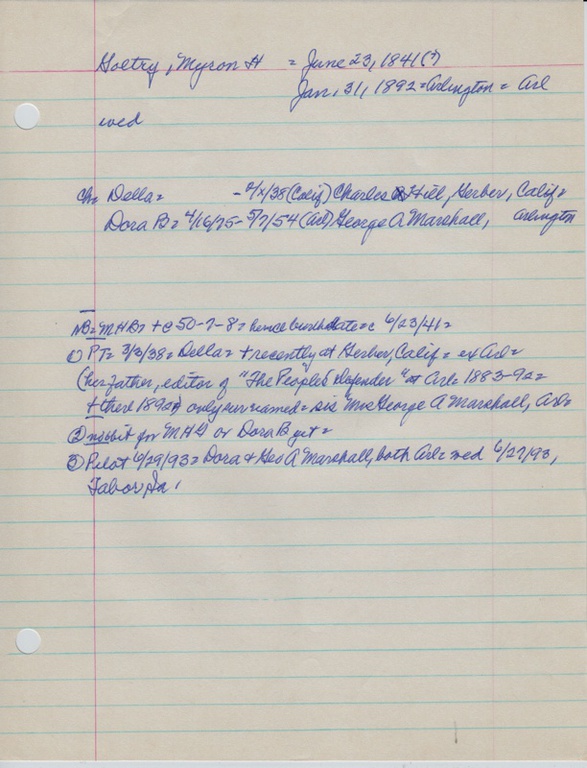 Goltry, Myron H = June 23, 1841(?)
Jan. 31, 1892 = Arlington = Arl
wed
ch = Della = - 2/x/38 (Calif) Charles Hill, Gerber, Calif =
Dora B = 4/16/75 - 5/7/54 (Arl) George A Marshall, Arlington
NB = MHB = + @ 50-7-8 = hence birthdate = c 6/23/41 =
(1) PT = 3/3/38 = Della = + recently at Gerber, Calif = ex Arl =
(her father, editor of "The People's Defender" at Arl = 1883-92 =
+ there 1892) only survived = sis Mrs George A Marshall, Arl =
(2) no obit for MHG or Dora B yet =
(3) Pilot 6/29/93 = Dora + Geo A Marshall, both Arl = wed 6/27/93,
Tabor, Ia.